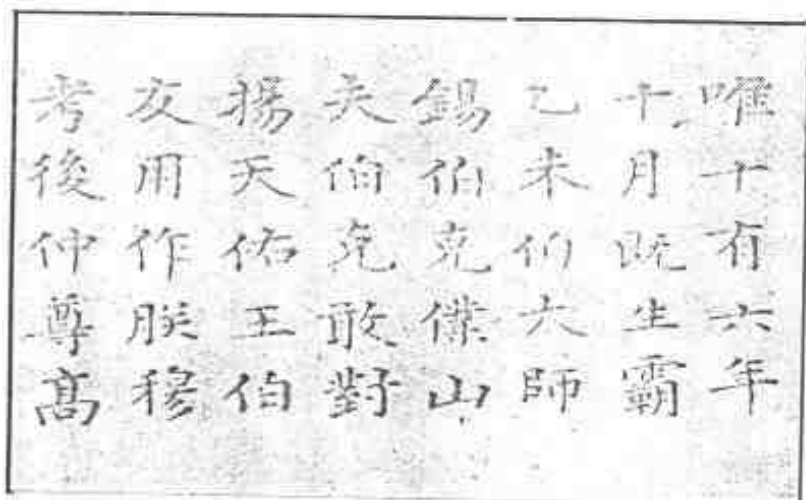 唯十有六年
十月既生霸
乙未伯大師
錫伯克僕山
夫伯克敢對
揚天佑王伯
友用作朕穆
考後仲尊高